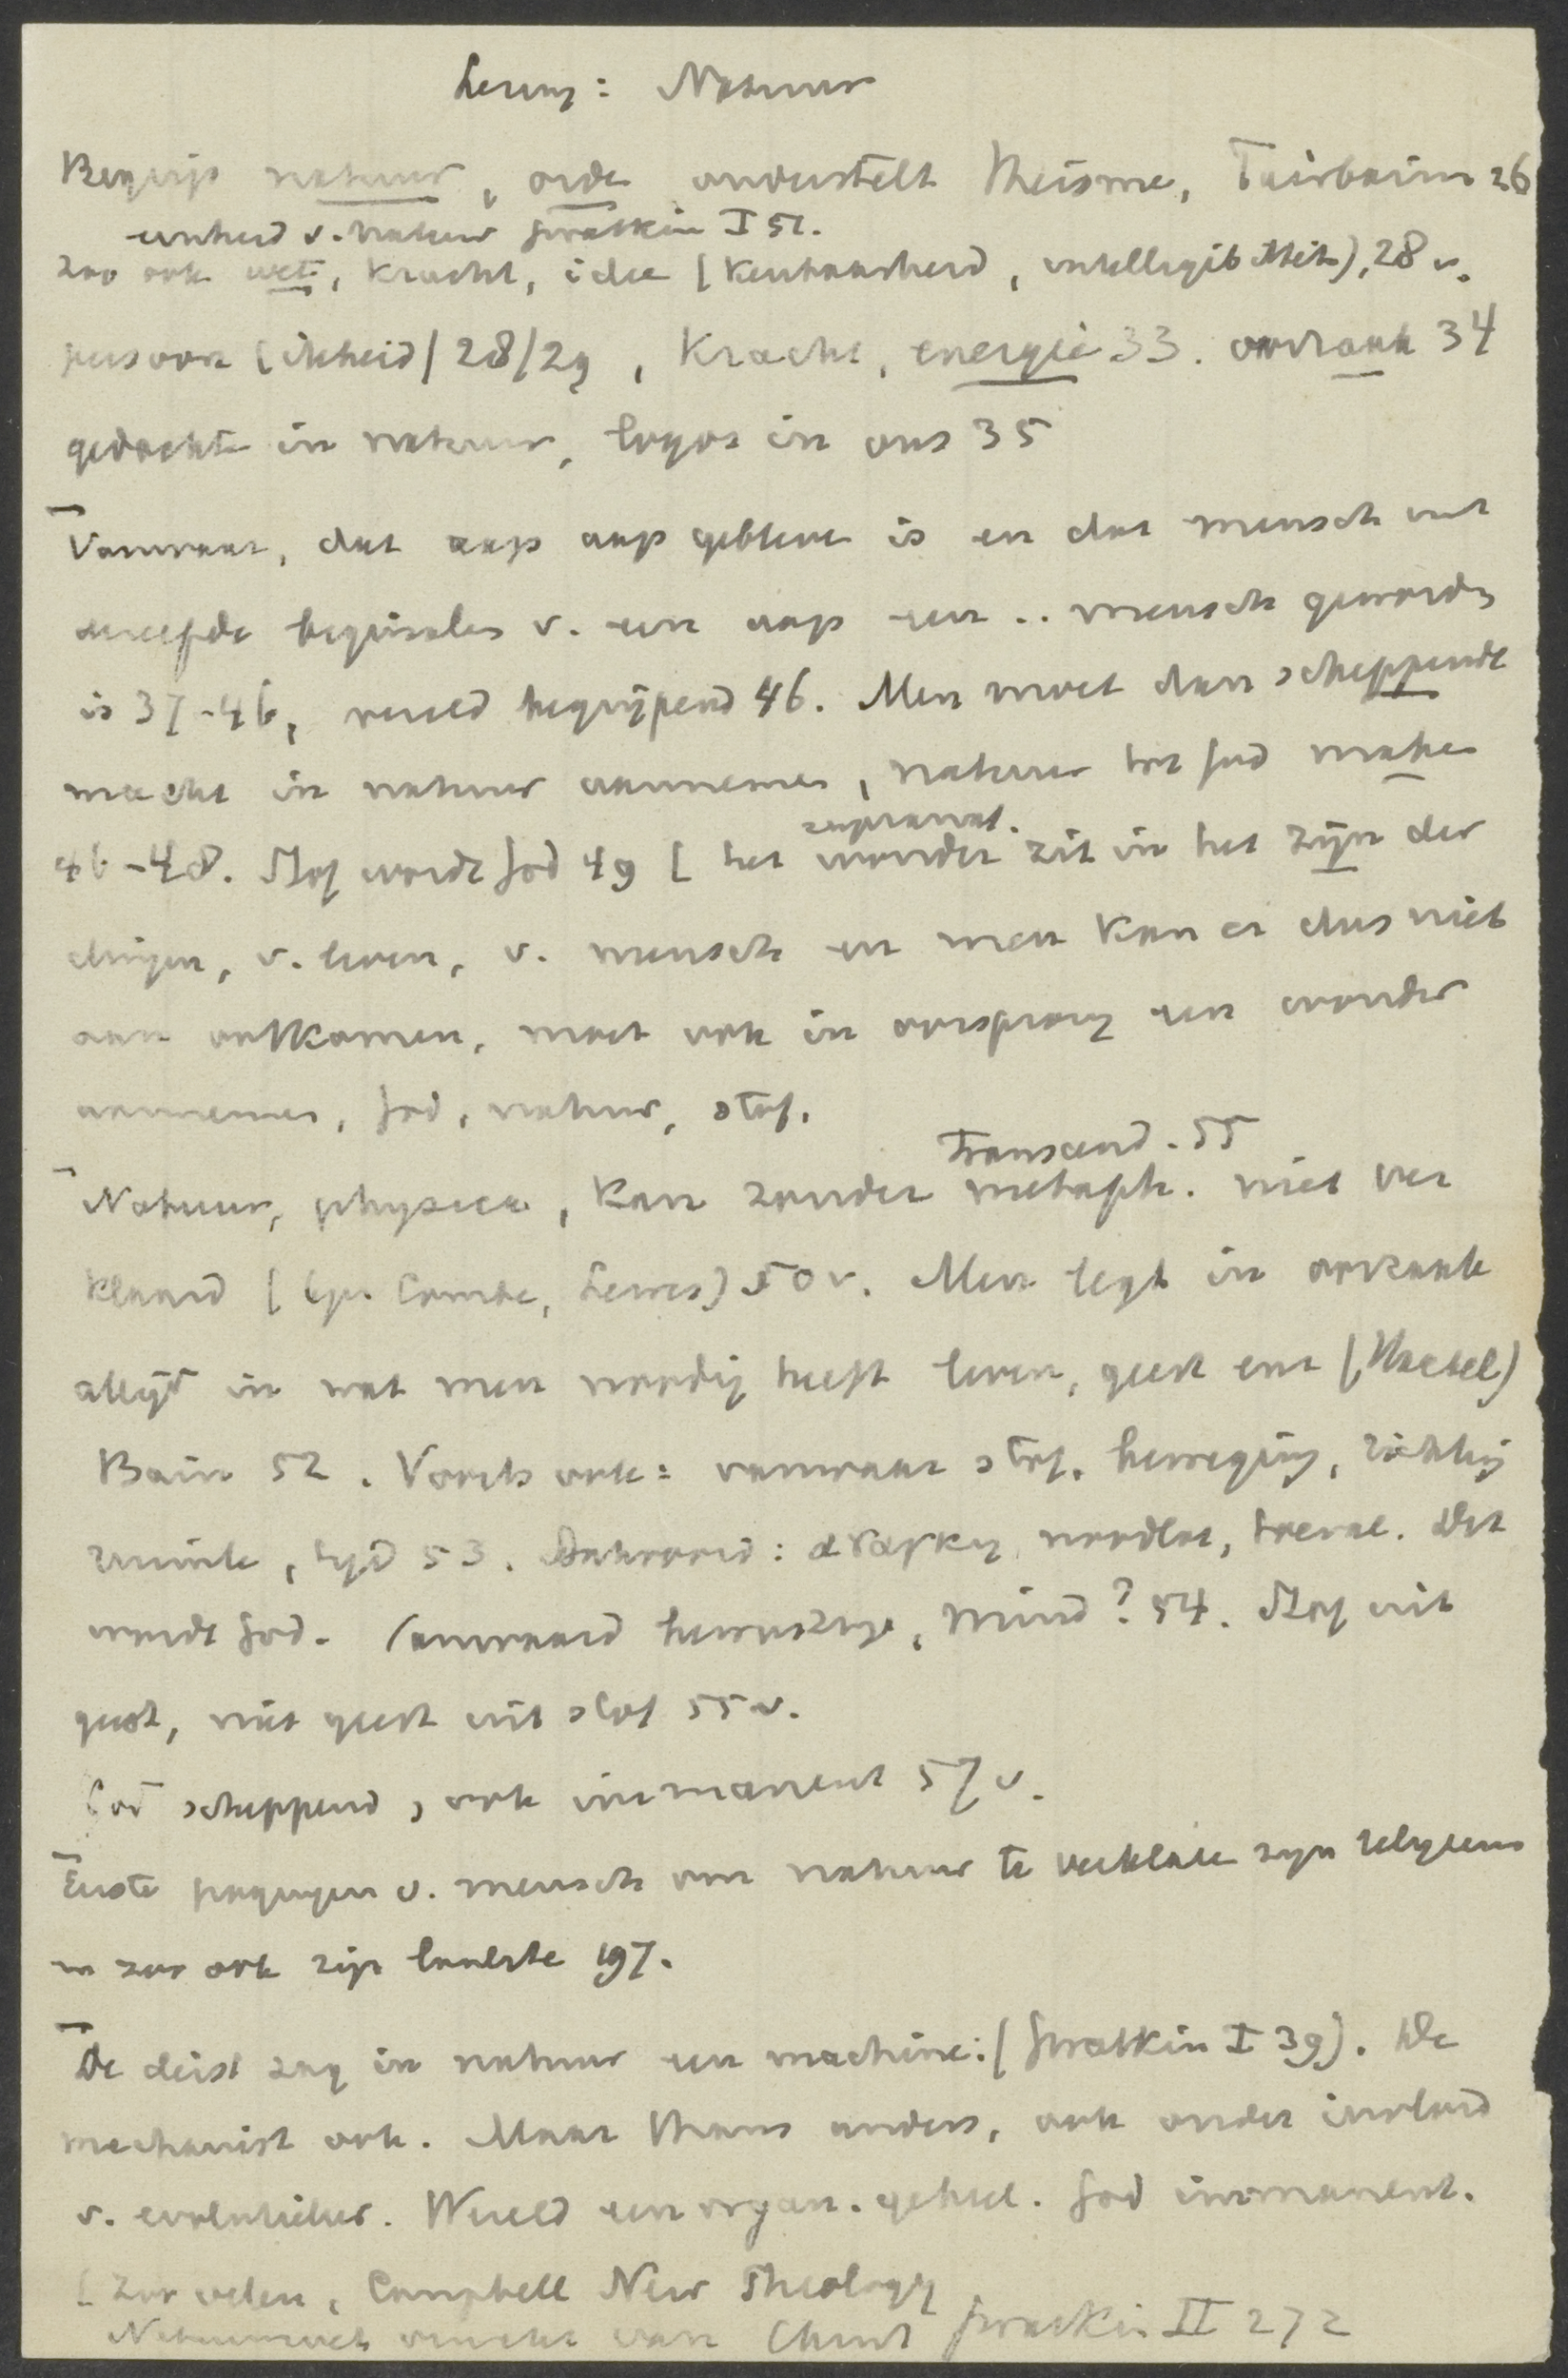 Lezing: Natuur
Begrip natuur, orde onderstelt Theisme, Fairbairn 26
eenheid v. natuur Gwatkin I 51.
Zoo ook wet, kracht, idee (kenbaarheid, intelligibiliteit), 28 v.
persoonlijkheid / 28/29, Kracht, energie 33. oorzaak 34
gedachte in natuur, logos in ons 35
Vanwaar, dat aap aap gebleven is en dat mensch uit
dezelfde beginselen v. een aap een .. mensch geworden
is 37-46, wereld begrijpend 46. Men moet dan scheppende
macht in natuur aannemen, natuur tot God maken
46-48. Stof wordt God 49 [ het wonder zit in het zijn der
supranat.
dingen, v. leven, v. mensch en men kan er dus niet
aan ontkomen, moet ook in oorsprong een wonder
aannemen, God, natuur, stof.
Transcend. 55
Natuur, physica, kan zonder metaph. niet ver
klaard (bv. Comte, Lewes) 50 v. Men legt in oorzaak
altijd in wat men noodig heeft leven, geest enz (Haeckel)
Bain 52. Voorts ook: vanwaar stof, beweging, richting
ruimte, tijd 53. Antwoord: noodlot, toeval. Dit
wordt God. Vanwaar bewustzijn, Mind? 54. Stof uit
geest, niet geest uit stof 55 v.
God scheppend, ook immanent 57 v.
Eerste pogingen v. mensch om natuur te verklaren zijn religieus
en zoo ook zijn laatste 197.
De deist zag in natuur een machine: (Gwatkin I 39). De
mechanist ook. Maar thans anders, ook onder invloed
v. evolutieleer. Wereld een organ. geheel. God immanent.
[ Zoo velen, Campbell New Theology
Natuurwet van Christ Gwatkin II 272